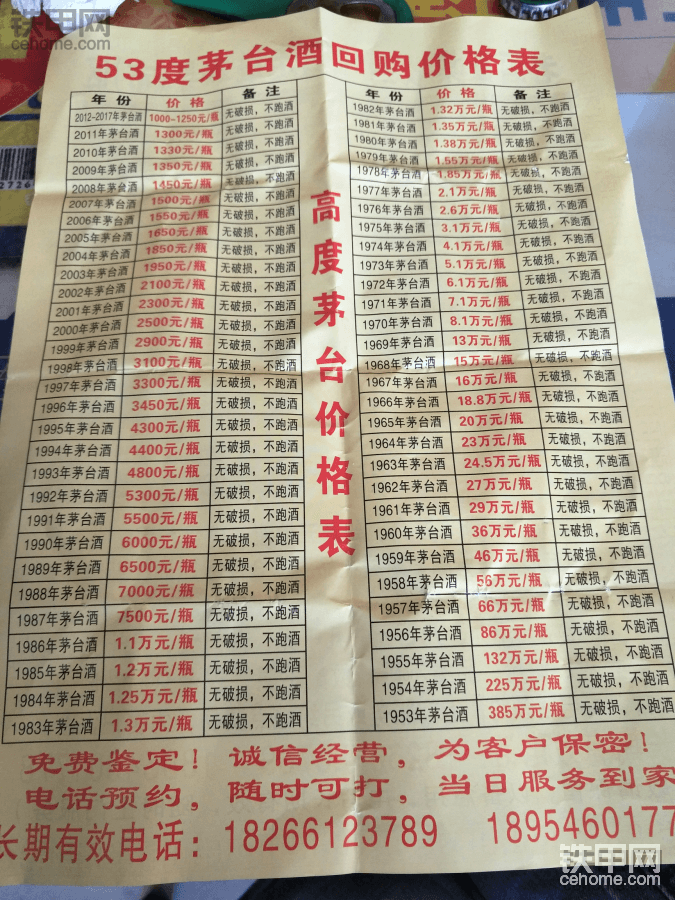 铁甲网
cehome.com
53度茅台酒回购价格表
年份 价格 备注
2012-2017年茅台酒 1000~1250元/瓶 无破损,不跑酒
2011年茅台酒 1300元/瓶 无破损,不跑酒
2010年茅台酒 1330元/瓶 无破损,不跑酒
2009年茅台酒 1350元/瓶 无破损,不跑酒
2008年茅台酒 1450元/瓶 无破损,不跑酒
2007年茅台酒 1500元/瓶 无破损,不跑酒
2006年茅台酒 1550元/瓶 无破损,不跑酒
2005年茅台酒 1650元/瓶 无破损,不跑酒
2004年茅台酒 1850元/瓶 无破损,不跑酒
2003年茅台酒 1950元/瓶 无破损,不跑酒
2002年茅台酒 2100元/瓶 无破损,不跑酒
2001年茅台酒 2300元/瓶 无破损,不跑酒
2000年茅台酒 2500元/瓶 无破损,不跑酒
1999年茅台酒 2900元/瓶 无破损,不跑酒
1998年茅台酒 3100元/瓶 无破损,不跑酒
1997年茅台酒 3300元/瓶 无破损,不跑酒
1996年茅台酒 3450元/瓶 无破损,不跑酒
1995年茅台酒 4300元/瓶 无破损,不跑酒
1994年茅台酒 4400元/瓶 无破损,不跑酒
1993年茅台酒 4800元/瓶 无破损,不跑酒
1992年茅台酒 5300元/瓶 无破损,不跑酒
1991年茅台酒 5500元/瓶 无破损,不跑酒
1990年茅台酒 6000元/瓶 无破损,不跑酒
1989年茅台酒 6500元/瓶 无破损,不跑酒
1988年茅台酒 7000元/瓶 无破损,不跑酒
1987年茅台酒 7500元/瓶 无破损,不跑酒
1986年茅台酒 1.1万元/瓶 无破损,不跑酒
1985年茅台酒 1.2万元/瓶 无破损,不跑酒
1984年茅台酒 1.25万元/瓶 无破损,不跑酒
1983年茅台酒 1.3万元/瓶 无破损,不跑酒
高度茅台价格表
年份 价格 备注
1982年茅台酒 1.32万元/瓶 无破损,不跑酒
1981年茅台酒 1.35万元/瓶 无破损,不跑酒
1980年茅台酒 1.38万元/瓶 无破损,不跑酒
1979年茅台酒 1.55万元/瓶 无破损,不跑酒
1978年茅台酒 1.85万元/瓶 无破损,不跑酒
1977年茅台酒 2.1万元/瓶 无破损,不跑酒
1976年茅台酒 2.6万元/瓶 无破损,不跑酒
1975年茅台酒 3.1万元/瓶 无破损,不跑酒
1974年茅台酒 4.1万元/瓶 无破损,不跑酒
1973年茅台酒 5.1万元/瓶 无破损,不跑酒
1972年茅台酒 6.1万元/瓶 无破损,不跑酒
1971年茅台酒 7.1万元/瓶 无破损,不跑酒
1970年茅台酒 8.1万元/瓶 无破损,不跑酒
1969年茅台酒 13万元/瓶 无破损,不跑酒
1968年茅台酒 15万元/瓶 无破损,不跑酒
1967年茅台酒 16万元/瓶 无破损,不跑酒
1966年茅台酒 18.8万元/瓶 无破损,不跑酒
1965年茅台酒 20万元/瓶 无破损,不跑酒
1964年茅台酒 23万元/瓶 无破损,不跑酒
1963年茅台酒 24.5万元/瓶 无破损,不跑酒
1962年茅台酒 27万元/瓶 无破损,不跑酒
1961年茅台酒 29万元/瓶 无破损,不跑酒
1960年茅台酒 36万元/瓶 无破损,不跑酒
1959年茅台酒 46万元/瓶 无破损,不跑酒
1958年茅台酒 56万元/瓶 无破损,不跑酒
1957年茅台酒 66万元/瓶 无破损,不跑酒
1956年茅台酒 86万元/瓶 无破损,不跑酒
1955年茅台酒 132万元/瓶 无破损,不跑酒
1954年茅台酒 225万元/瓶 无破损,不跑酒
1953年茅台酒 385万元/瓶 无破损,不跑酒
免费鉴定!诚信经营,为客户保密!
电话预约,随时可打,当日服务到家
长期有效电话:18266123789 1895460177
铁甲网
cehome.com